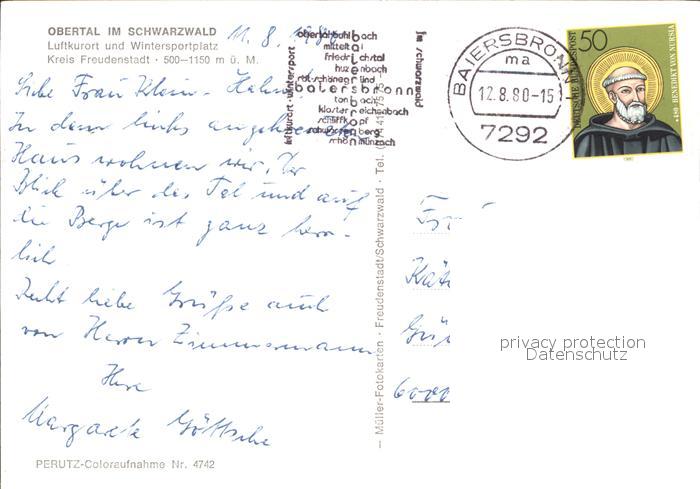 OBERTAL IM SCHWARZWALD
Luftkurort und Wintersportplatz
Kreis Freudenstadt · 500—1150 m ü. M.
11. 8. 1980
Liebe Frau Klein-
In dem links
Haus wohnen wir. Der
Blick über das Tal und auf
die Berge ist ganz herr-
lich.
Recht liebe Grüße auch
von Herrn Zimmermann
Ihre
Margarete Göttsche
PERUTZ-Coloraufnahme Nr. 4742
— Müller-Fotokarten · Freudenstadt/Schwarzwald · Tel.
luftkurort·wintersport
obertal·buhlbach
mitteltal
friedrichstal
huzenbach
röt·schönegründ
baiersbronn
tonbach
klosterreichenbach
schönmünzach
im schwarzwald
BAIERSBRONN
ma
12.8.80-15
7292
50
DEUTSCHE BUNDESPOST
*480 BENEDIKT VON NURSIA
Kät
6000
privacy protection
Datenschutz